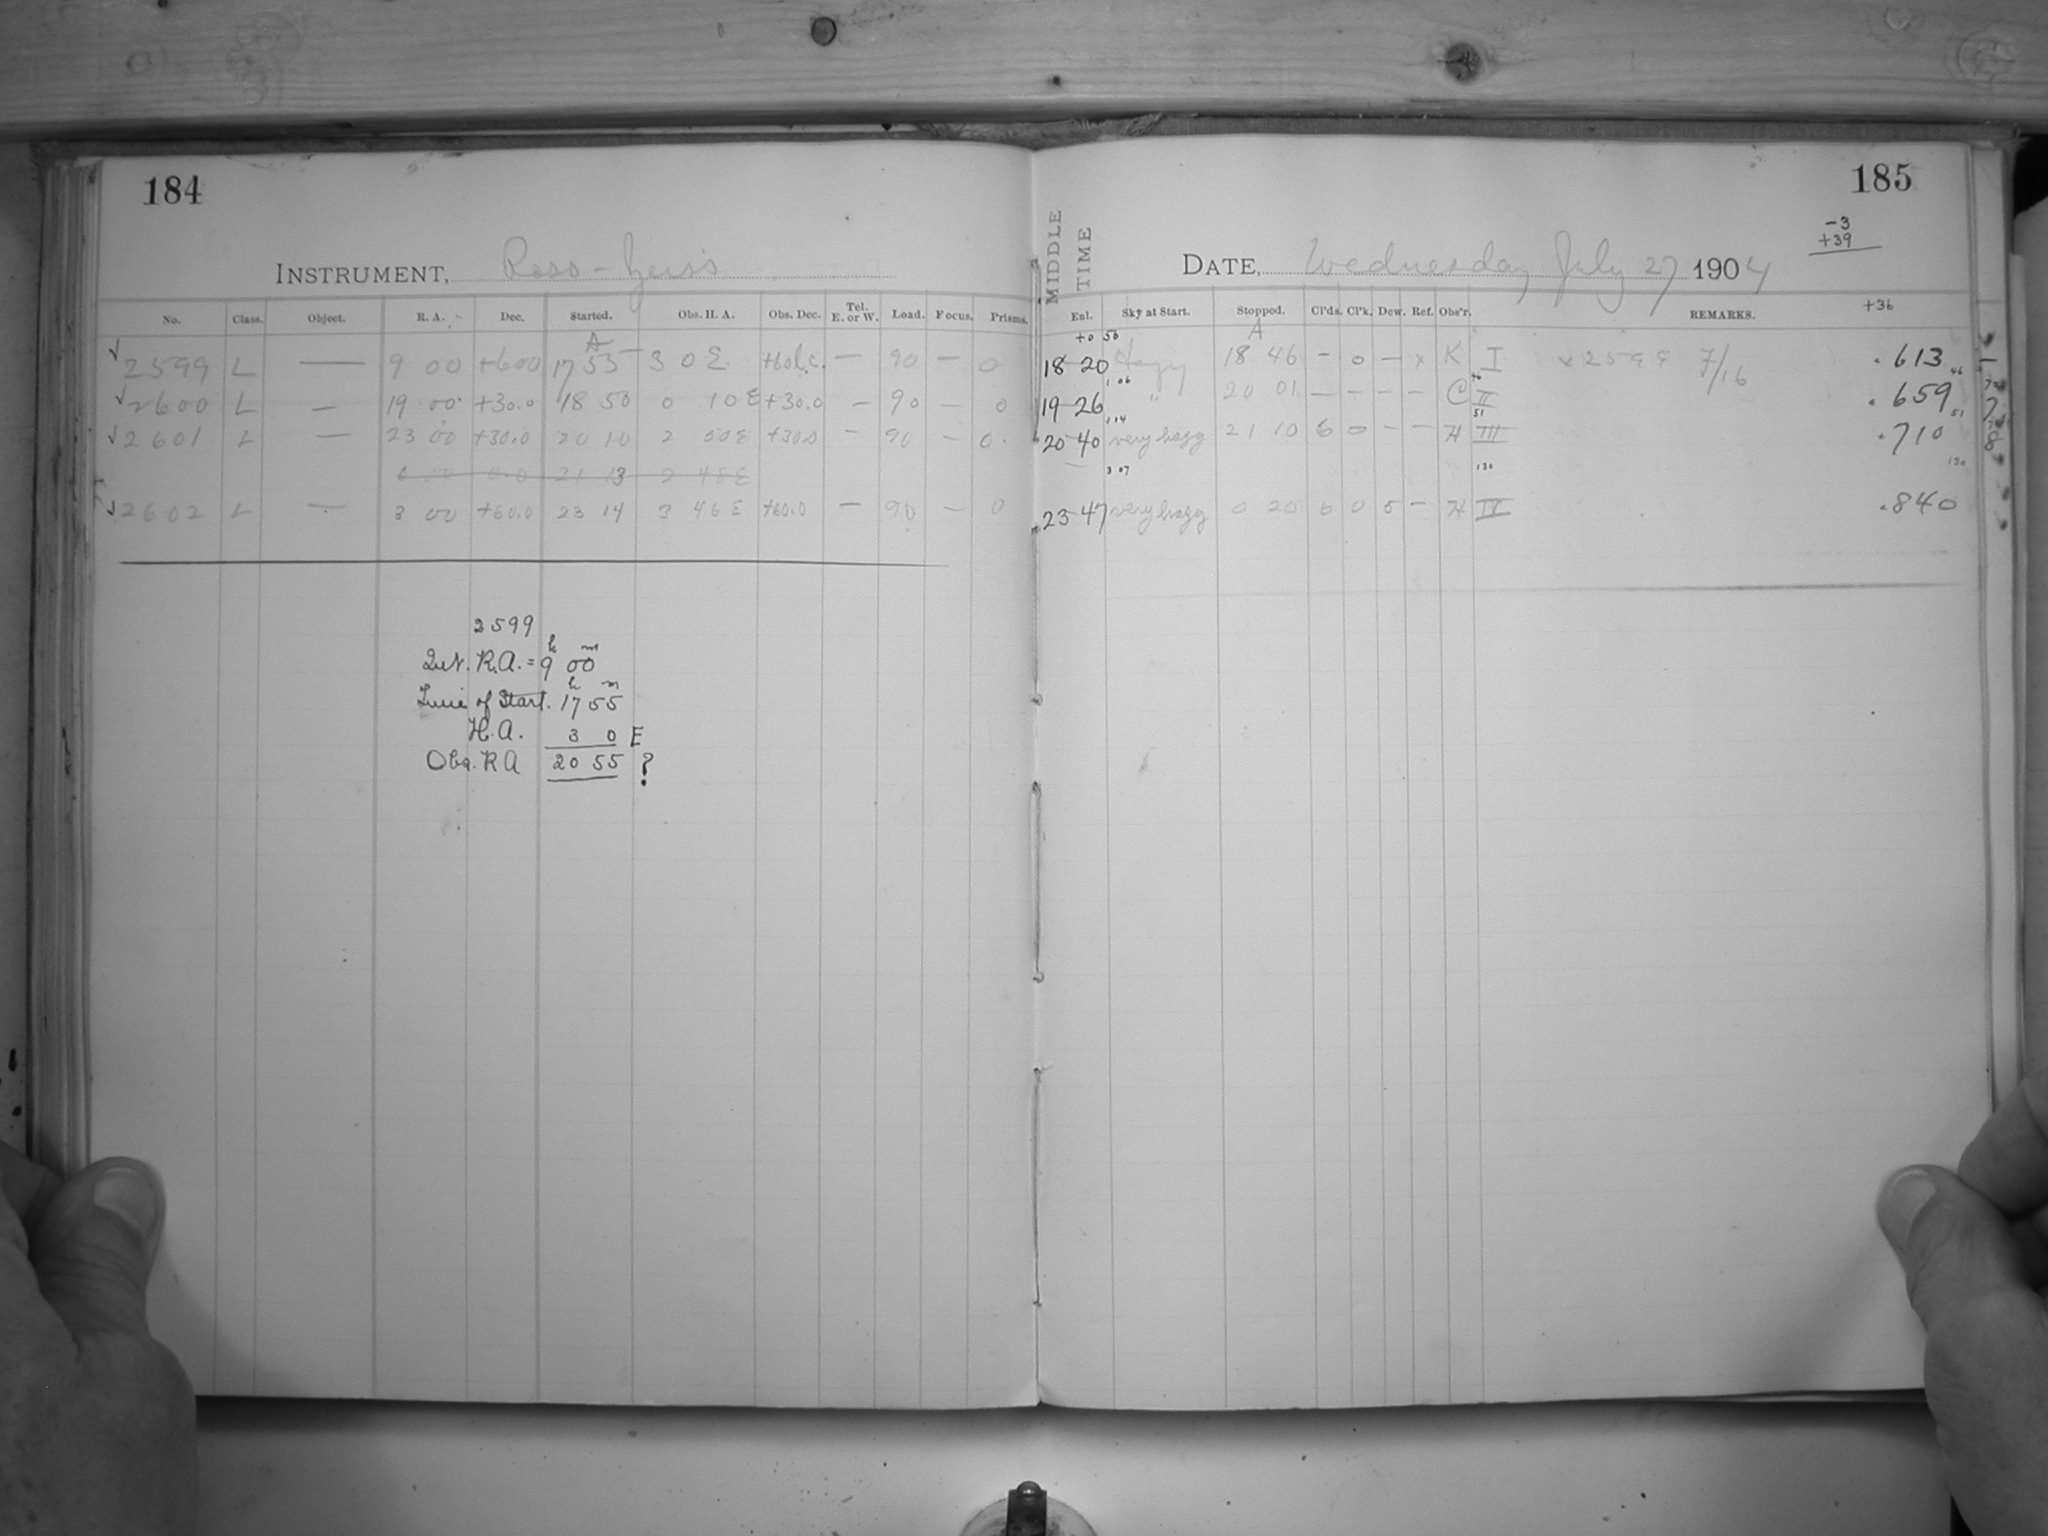 184
INSTRUMENT, Ross-Zeiss
No. Class. Object. R. A. Dec. Started. Obs. H. A. Obs. Dec. Tel. E. or W. Load. Focus. Prisms.
A
√ 2599 L — 9 00 +60 0 17 55 3 0 E +60 L.C. — 90 — 0
√ 2600 L — 19 00 +30.0 18 50 0 10 E +30.0 — 90 — 0
√ 2601 L — 23 00 +30.0 20 10 2 50 E +30.0 — 90 — 0
21 13 2 48 E
√ 2602 L — 3 00 +60.0 23 14 3 46 E +60.0 — 90 — 0
2599
Int. R.A. = 9h 00m
Time of Start. 17h 55m
H.A. 3 0 E
Obs. R A 20 55 ?
185
MIDDLE TIME
-3
+39
DATE, Wednesday July 27 1904
+36
Ent. Sky at Start. Stopped. Cl'ds. Cl'k. Dew. Ref. Obs'r. REMARKS.
+0 50 A
18-20 Hazy 18 46 - 0 - x K I x 2599 7/16 .613
1 06 46 46
19-26 " 20 01 - - - - C II .659
1 14 51 51
20-40 very hazy 21 10 6 0 - - H III .710
3 07 130 130
23-47 very hazy 0 20 6 0 5 - H IV .840